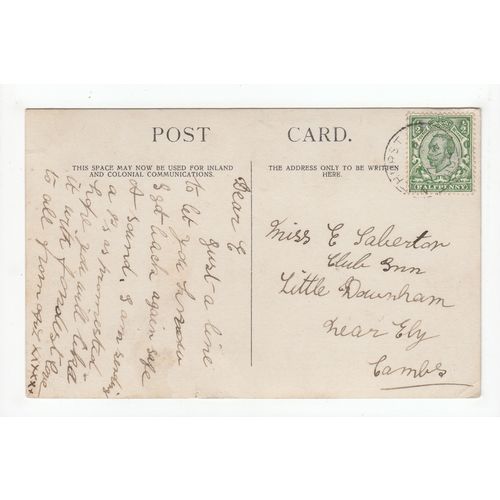 POST CARD.
THIS SPACE MAY NOW BE USED FOR INLAND
AND COLONIAL COMMUNICATIONS.
THE ADDRESS ONLY TO BE WRITTEN
HERE.
HALFPENNY
Dear E
Just a line
to let you know
I got back again safe
& sound. I am sending
a P.c as promised
hope you will like
it with fondest love
to all from xxxxx
Miss E Saberton
Club Inn
Little Downham
near Ely
Cambs